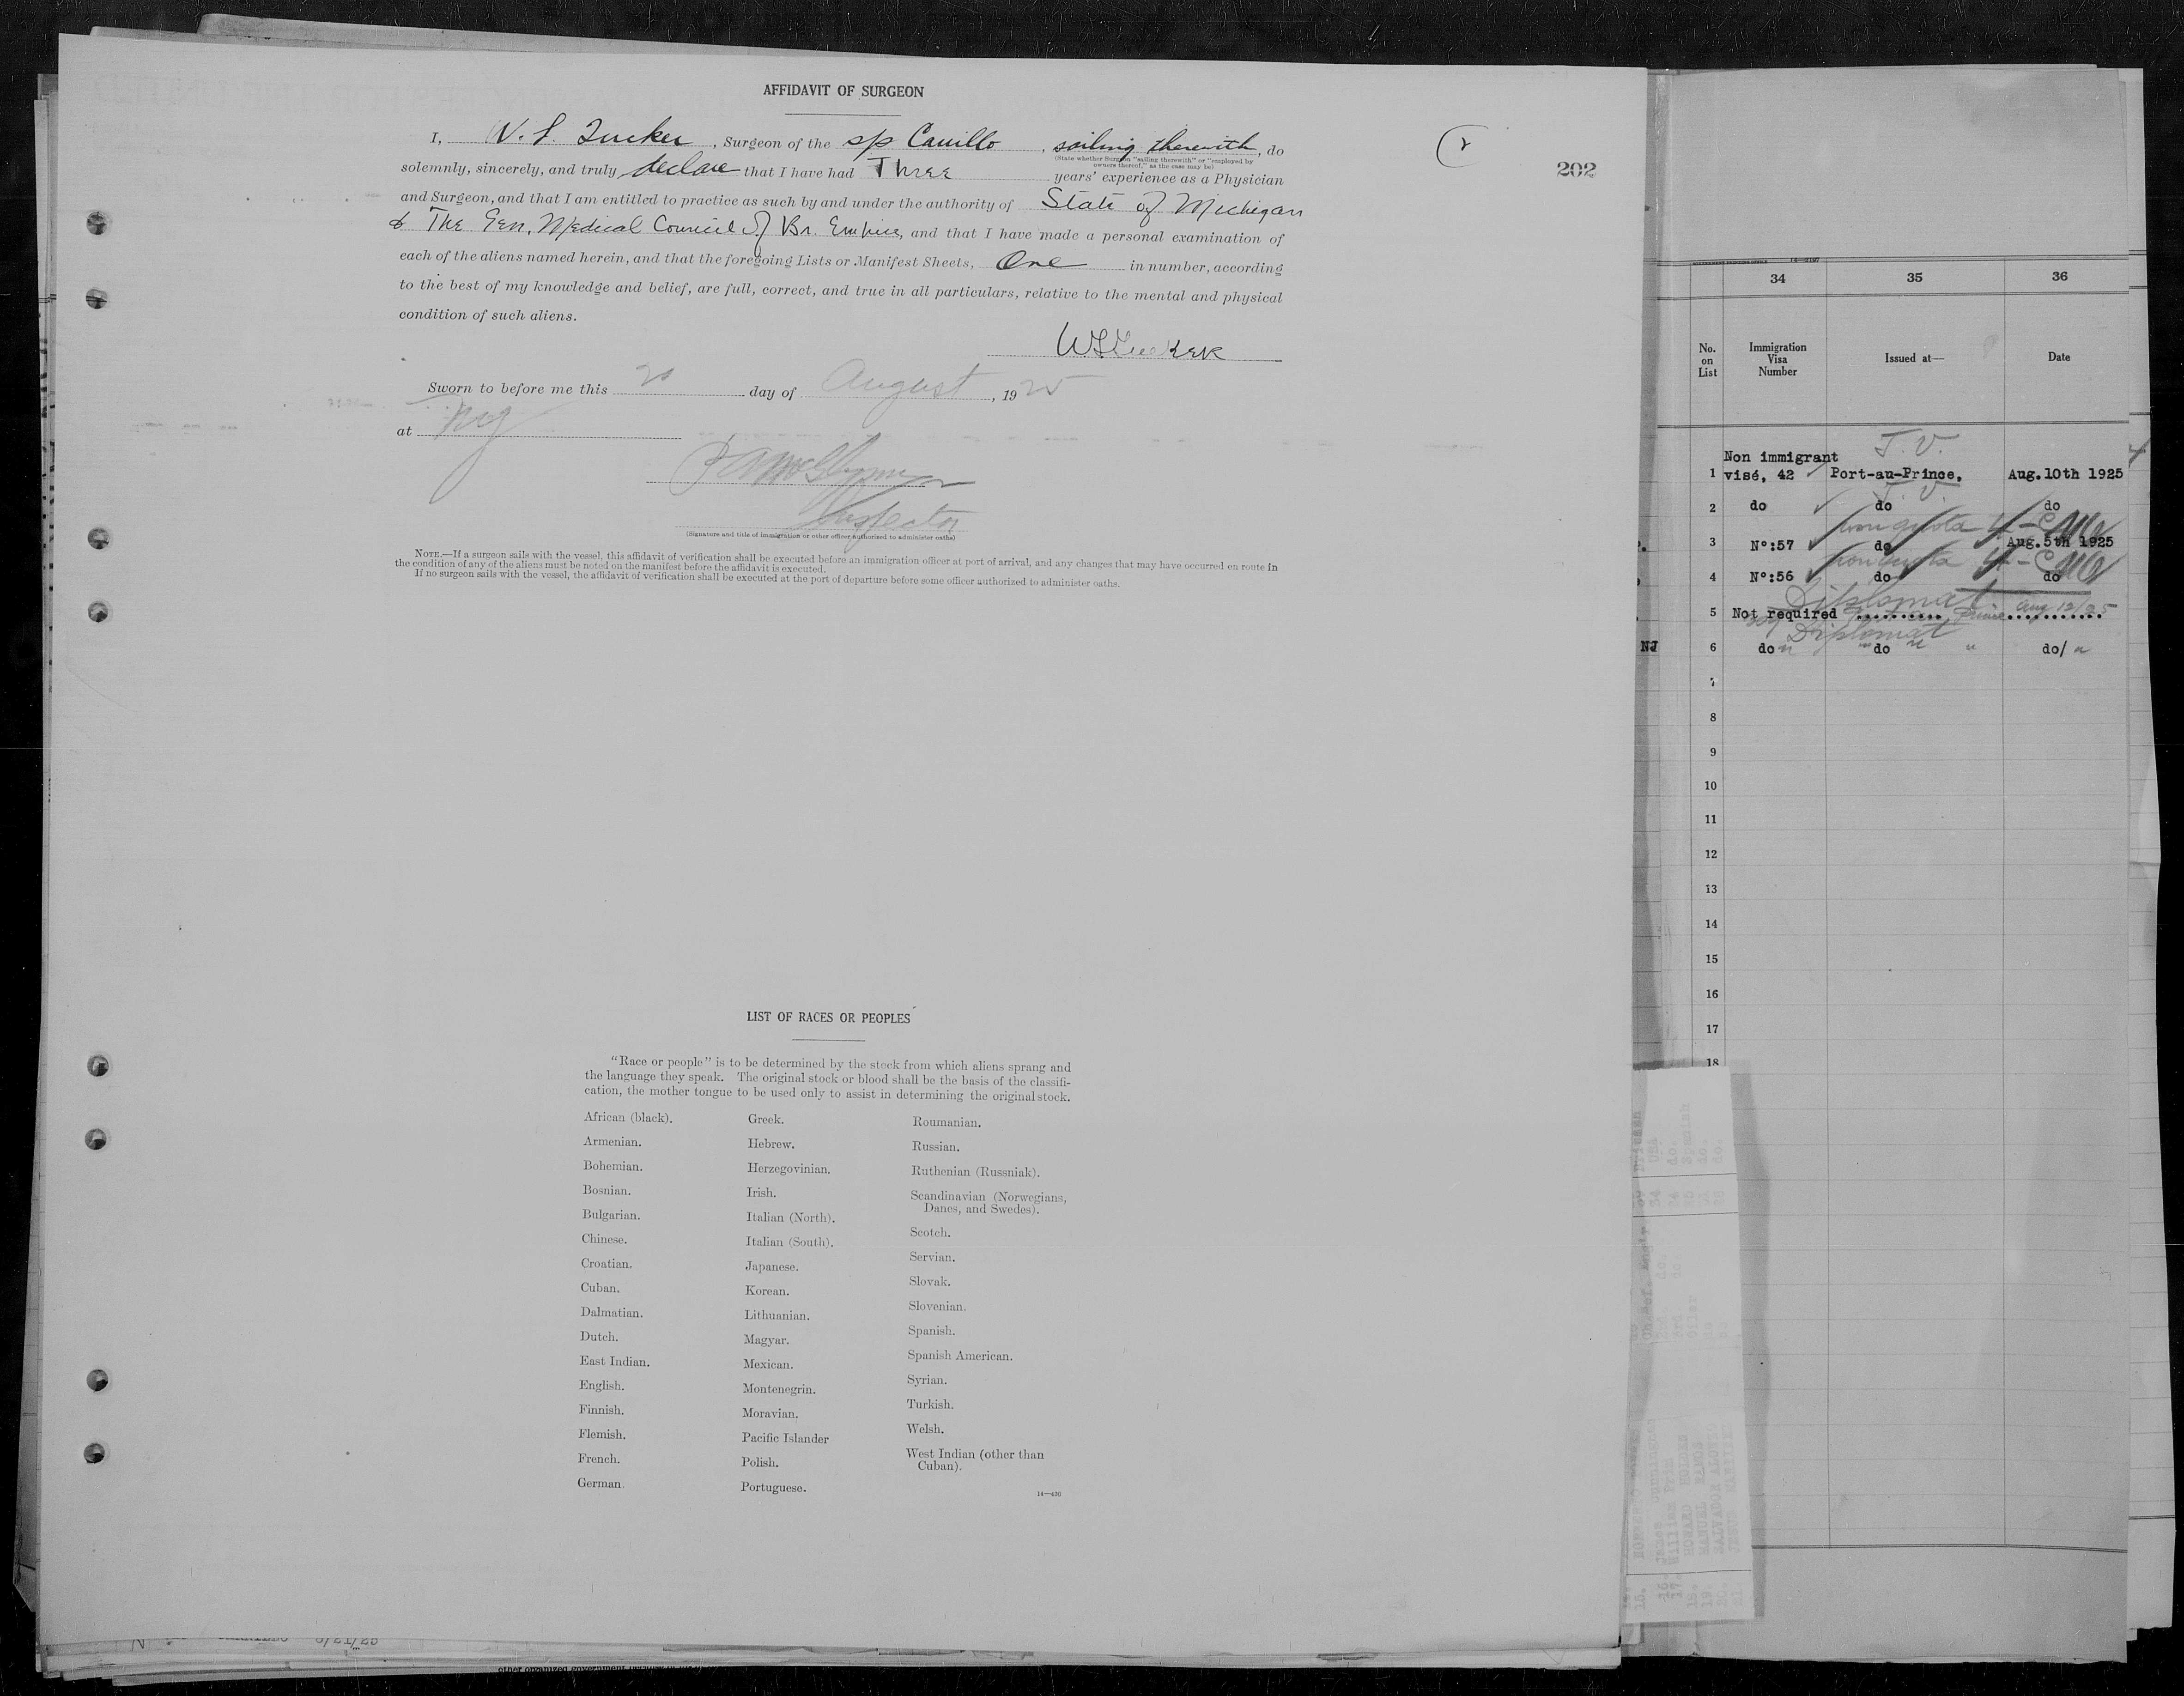 AFFIDAVIT OF SURGEON
202
I, Tucker, Surgeon of the sailing therewith, do
(State whether Surgeon "sailing therewith" or "employed by
owners thereof," as the case may be)
solemnly, sincerely, and truly declare that I have had Three years' experience as a Physician
and Surgeon, and that I am entitled to practice as such by and under the authority of State of Michigan
& The Gen. Medical Council of Br. Empire, and that I have made a personal examination of
each of the aliens named herein, and that the foregoing Lists or Manifest Sheets, One in number, according
to the best of my knowledge and belief, are full, correct, and true in all particulars, relative to the mental and physical
condition of such aliens.
Sworn to before me this 20 day of August, 1925
at NY
Inspector
(Signature and title of immigration or other officer authorized to administer oaths)
NOTE.—If a surgeon sails with the vessel, this affidavit of verification shall be executed before an immigration officer at port of arrival, and any changes that may have occurred en route in
the condition of any of the aliens must be noted on the manifest before the affidavit is executed.
If no surgeon sails with the vessel, the affidavit of verification shall be executed at the port of departure before some officer authorized to administer oaths.
LIST OF RACES OR PEOPLES
"Race or people" is to be determined by the stock from which aliens sprang and
the language they speak. The original stock or blood shall be the basis of the classifi-
cation, the mother tongue to be used only to assist in determining the original stock.
African (black).
Armenian.
Bohemian.
Bosnian.
Bulgarian.
Chinese.
Croatian.
Cuban.
Dalmatian.
Dutch.
East Indian.
English.
Finnish.
Flemish.
French.
German.
Greek.
Hebrew.
Herzegovinian.
Irish.
Italian (North).
Italian (South).
Japanese.
Korean.
Lithuanian.
Magyar.
Mexican.
Montenegrin.
Moravian.
Pacific Islander
Polish.
Portuguese.
Roumanian.
Russian.
Ruthenian (Russniak).
Scandinavian (Norwegians,
Danes, and Swedes).
Scotch.
Servian.
Slovak.
Slovenian.
Spanish.
Spanish American.
Syrian.
Turkish.
Welsh.
West Indian (other than
Cuban).
14—426
34 35 36
No. on List Immigration Visa Number Issued at— Date
T.V.
Non immigrant
1 visé, 42 Port-au-Prince. Aug.10th 1925
T.V.
2 do do do
3 Nº:57 do Aug.5th 1925
4 Nº:56 do do
Diplomat
5 Not required Prince Aug 12/25
Diplomat
NJ 6 do " do " " do/ "
7
8
9
10
11
12
13
14
15
16
17
18